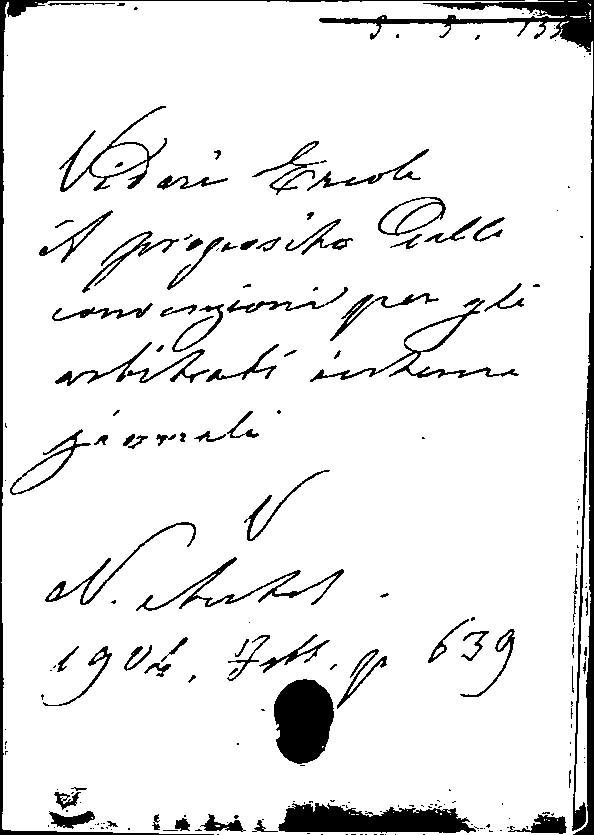 Vidari Ercole
A proposito delle
convenzioni per gli
arbitrati interna
zionali
V
N. Antol.
1904, Febb. p 639